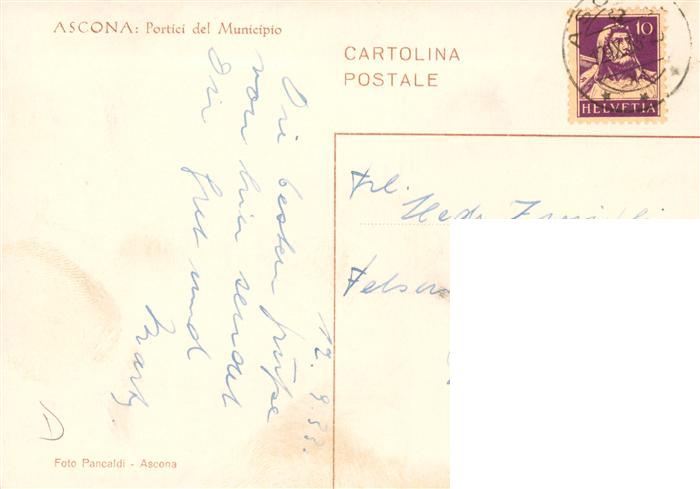 ASCONA: Portici del Municipio
CARTOLINA
POSTALE
10
HELVETIA
Die besten Grüße
von hier sendet
Dir
und
12. 9. 33.
Frl.
Hedi
Foto Pancaldi - Ascona